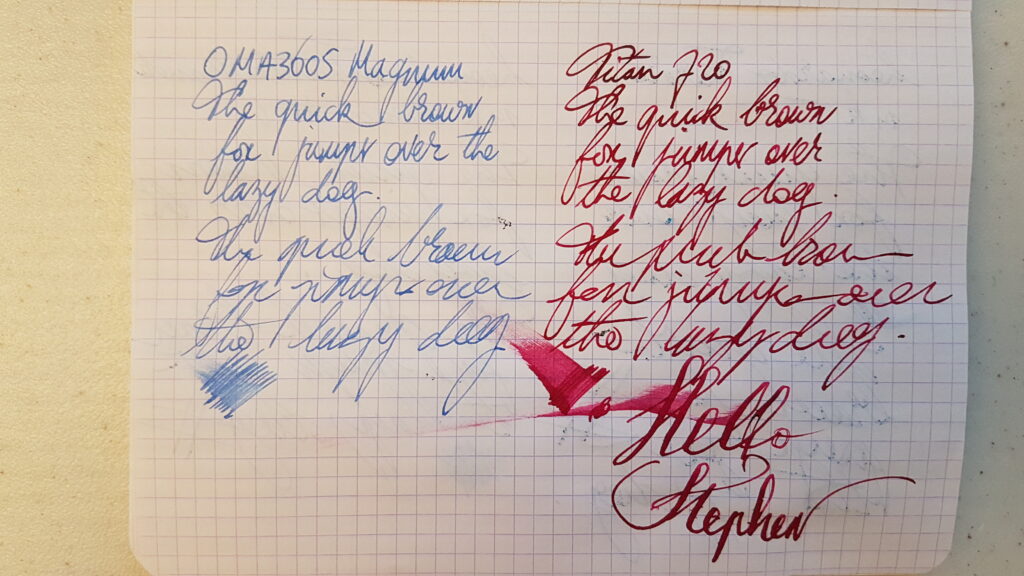 OMAS 360S Magnum
The quick brown
fox jumps over the
lazy dog.
The quick brown
fox jumps over
the lazy dog
Titan 720
The quick brown
fox jumps over
the lazy dog.
The quick brown
fox jumps over
the lazy dog.
Hello
Stephen